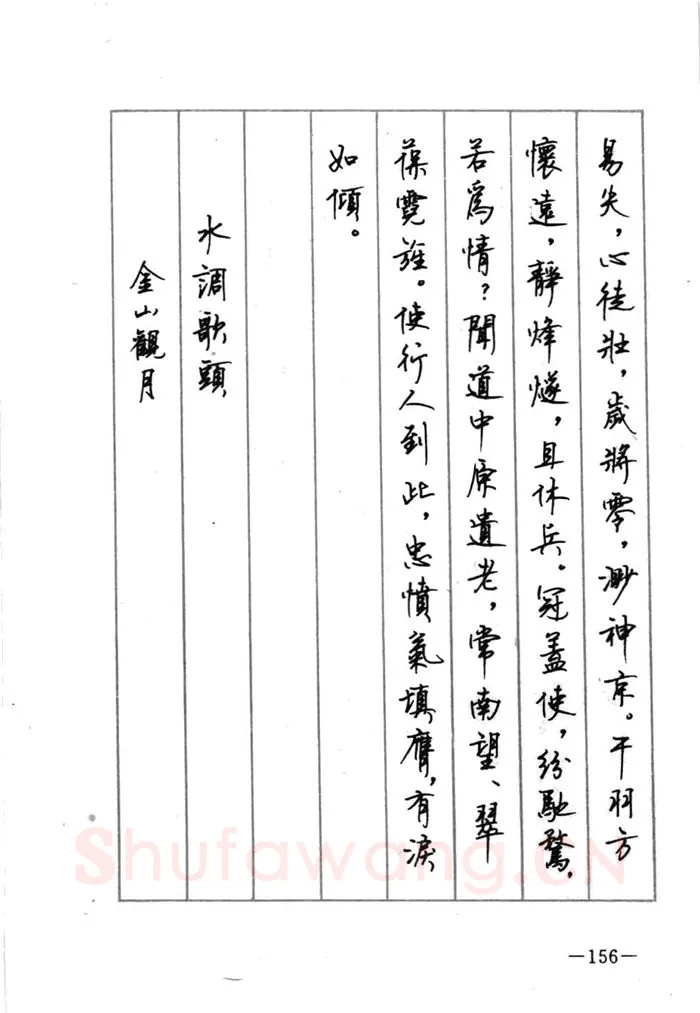 易失，心徒壯，歲將零，渺神京。干羽方
懷遠，靜烽燧，且休兵。冠蓋使，紛馳騖，
若爲情？聞道中原遺老，常南望、翠
葆霓旌。使行人到此，忠憤氣填膺，有淚
如傾。
水調歌頭
金山觀月
Shufawang.CN
—156—